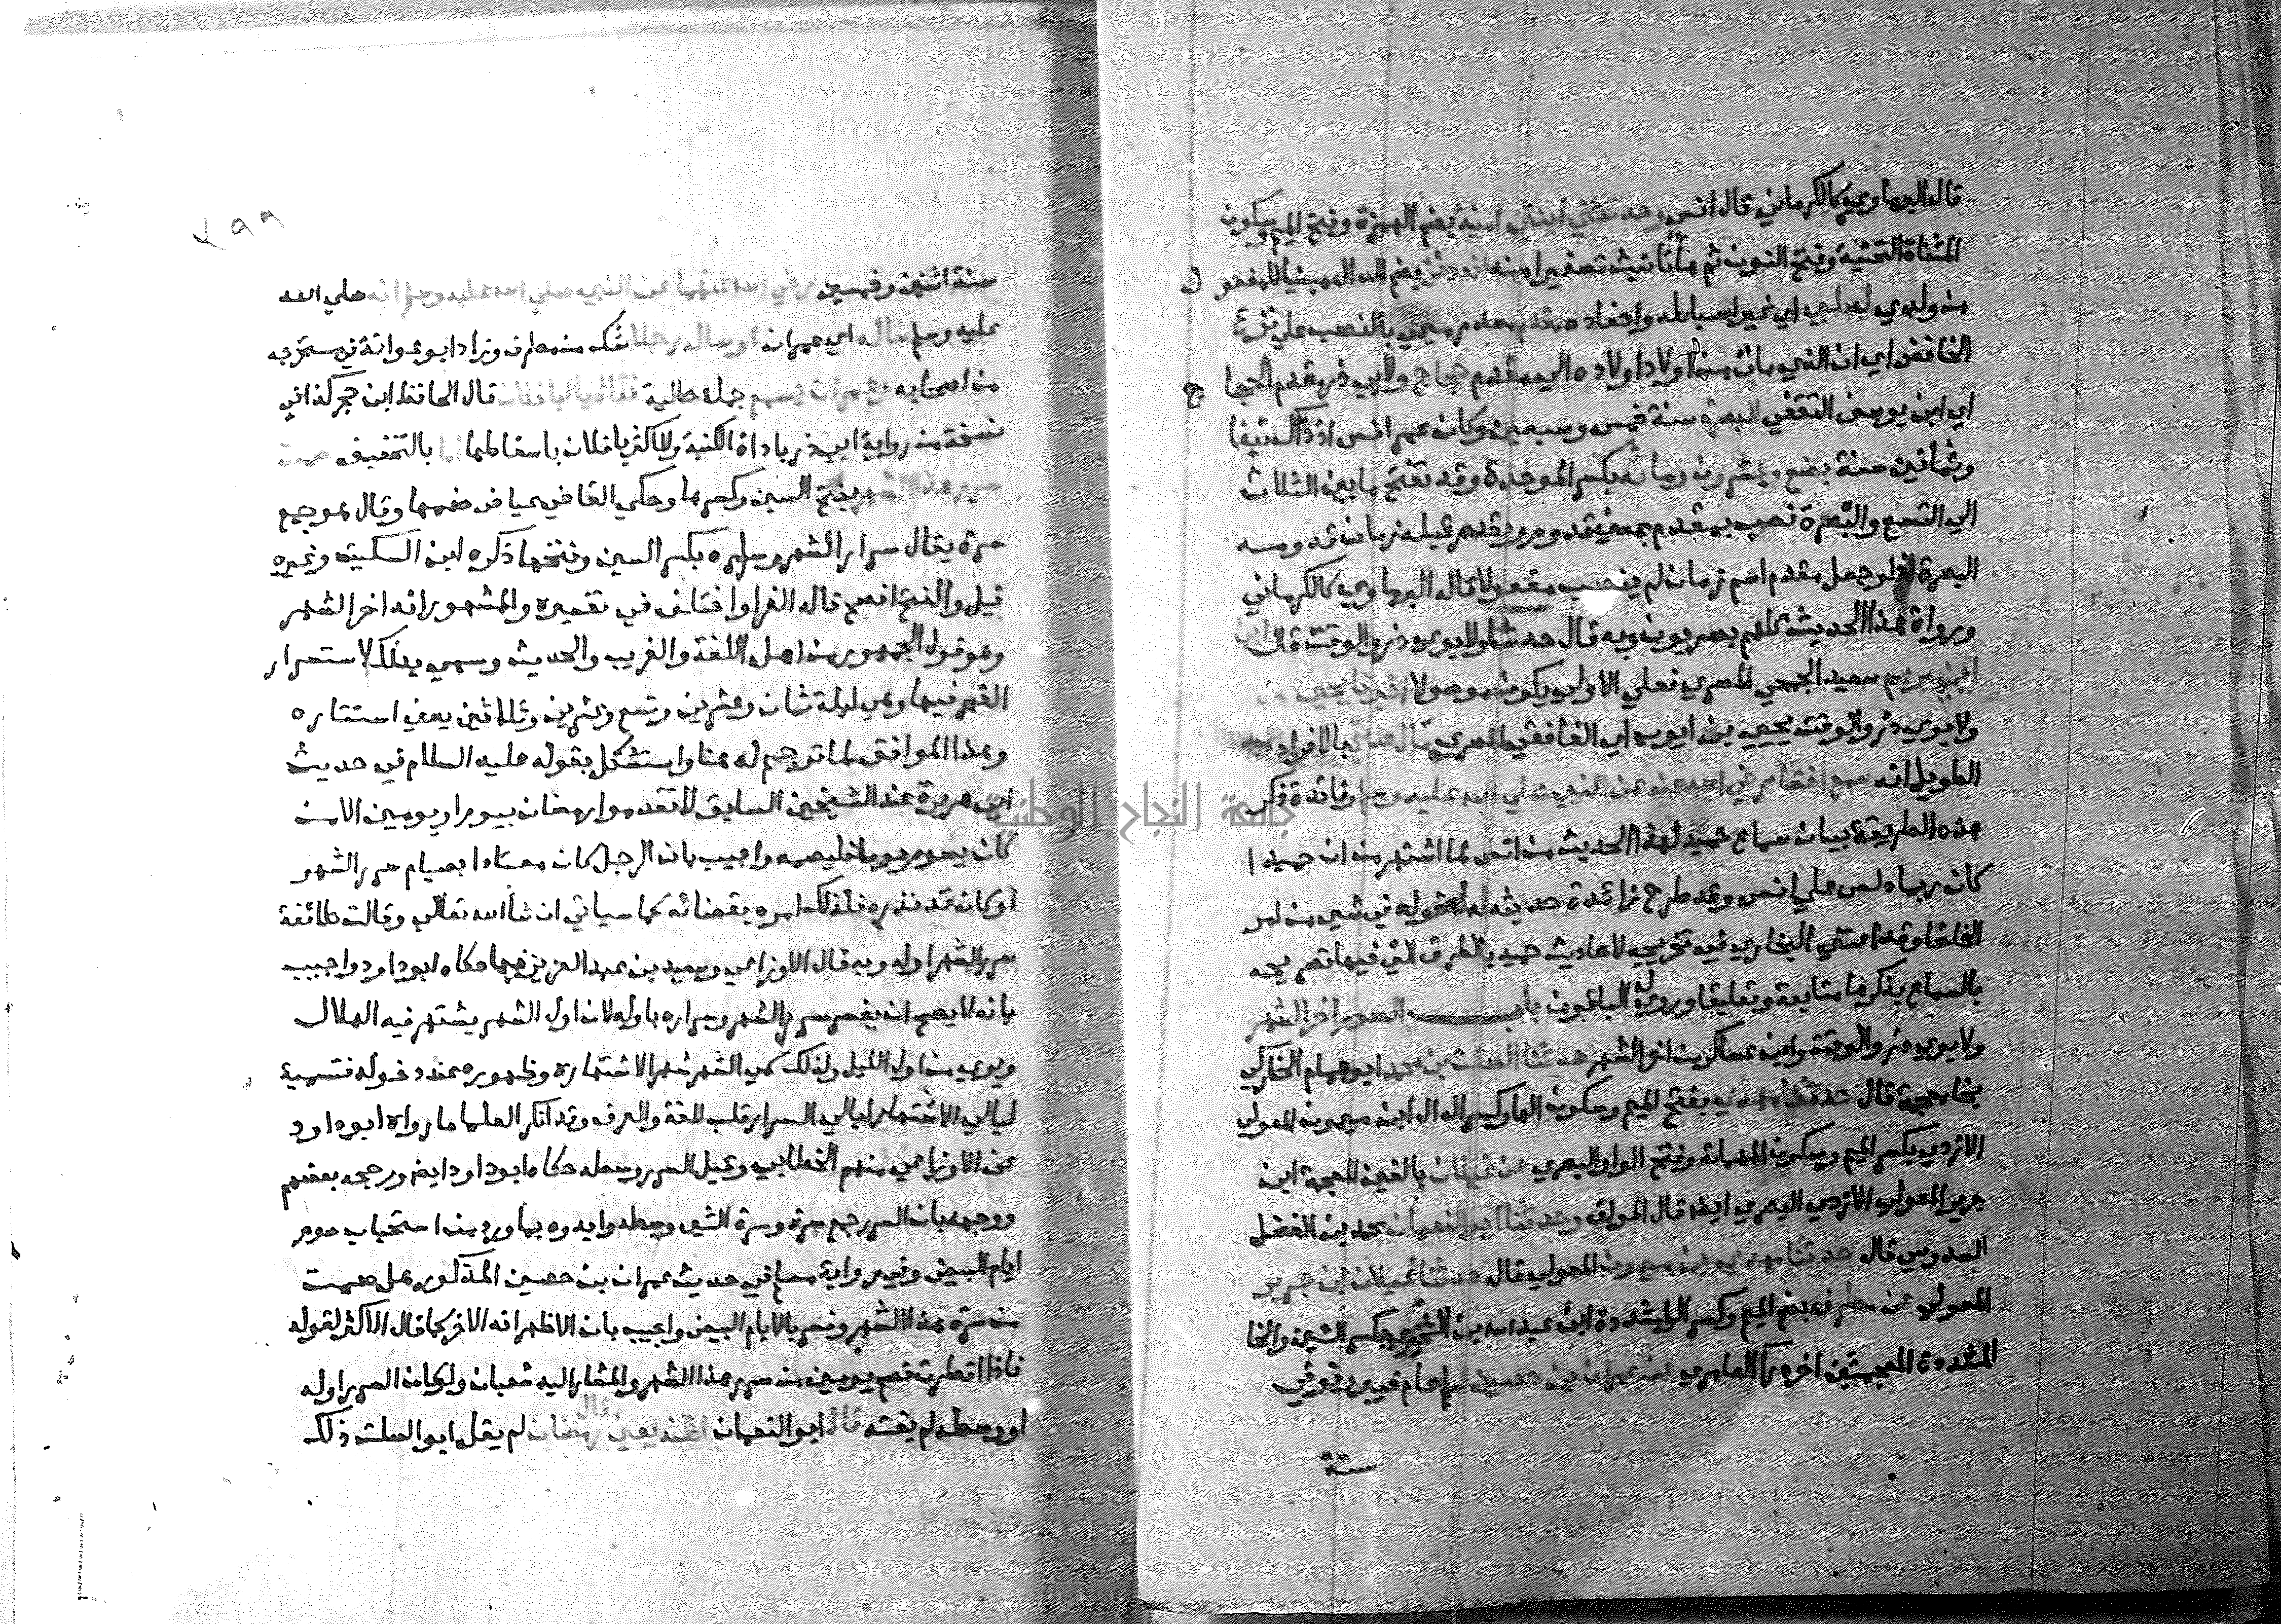 قاله البرماوي كالكرماني قال انس وحدثتني ابنتي امينة بضم الهمزة وفتح الميم وسكون
المثناة التحتية وفتح النون ثم هاء تانيث تصغير امنه انه دفن بضم الدال مبنيا للمفعول
من ولدي لصلبي اي غير اسباطه واحفاده مقدم مصدر ميمي بالنصب على نزع
الخافض اي ان الذي مات من اولاد اولاده الي مقدم حجاج ولابي ذر مقدم الحجاج
اي ابن يوسف الثقفي البصرة سنة خمس وسبعين وكان عمر انس اذ ذاك نيفا
وثمانين سنة بضع وعشرون وماتة بكسر الموحدة وقد تفتح ما بين الثلاث
الي التسع والبصرة نصب بمقدم بمعني قدوم ويقدر قبله زمان قدومه
البصرة اذ لو جعل مقدم اسم زمان لم ينصب مفعولا قاله البرماوي كالكرماني
ورواة هذا الحديث كلهم بصريون وبه قال حدثنا ولابوي ذر والوقت قال ابن
ابي مريم سعيد الجمحي المصري فعلي الاولي يكون موصولا اخبرنا يحيي
ولابوي ذر والوقت يحيي بن ايوب اي الغافقي المصري قال حدثني بالافراد حميد
الطويل انه سمع انسا رضي الله عنه عن النبي صلي الله عليه وسلم وفائدة ذكر
هذه الطريقة بيان سماع حميد لهذا الحديث من انس لما اشتهر من ان حميدا
كان ربما دلس علي انس وقد طرح زائدة حديثه لدخوله في شيء من امر
الخلفا وقد اعتني البخاري في تخريجه لاحاديث حميد بالطرق التي فيها تصريحه
بالسماع يذكرها متابعة وتعليقا وروي له الباقون باب الصوم اخر الشهر
ولابوي ذر والوقت وابن عساكر من اخر الشهر حدثنا الصلت بن محمد ابو همام الخاركي
بخا معجمة قال حدثنا مهدي بفتح الميم وسكون الها وكسر الدال ابن ميمون المعولي
الازدي بكسر الميم وسكون المهملة وفتح الواو البصري عن غيلان بالغين المعجمة ابن
جرير المعولي الازدي البصري ايضا قال المولف وحدثنا ابو النعمان محمد بن الفضل
السدوسي قال حدثنا مهدي بن ميمون المعولي قال حدثنا غيلان ابن جرير
المعولي عن مطرف بضم الميم وكسر الرا مشددة ابن عبد الله بن الشخير بكسر الشين والخا
المشددة المعجمتين اخره را العامري عن عمران بن حصين اسلم عام خيبر وتوفي
سنة
٢٩٩
سنة اثنين وخمسين رضي الله عنهما عن النبي صلي الله عليه وسلم انه صلي الله
عليه وسلم ساله اي عمران او سال رجلا شك من مطرف وزاد ابو عوانة في مستخرجه
من اصحابه وعمران يسمع جملة حالية فقال يا ابا فلان قال الحافظ ابن حجر كذا في
نسخة من رواية ابي ذر باداة الكنية وللاكثر يا فلان باسقاطها اما بالتخفيف صمت
سرر هذا الشهر بفتح السين وكسرها وحكي القاضي عياض ضمها وقال هو جمع
سرة يقال سرار الشهر وسراره بكسر السين وفتحها ذكره ابن السكيت وغيره
قيل والفتح افصح قاله الفرا واختلف في تفسيره والمشهور انه اخر الشهر
وهو قول الجمهور من اهل اللغة والغريب والحديث وسمي بذلك لاستسرار
القمر فيها وهي ليلة ثمان وعشرين وتسع وعشرين وثلاثين يعني استتاره
وهذا الموافق لما ترجم له هنا واستشكل بقوله عليه السلام في حديث
ابي هريرة عند الشيخين السابق لا تقدموا رمضان بيوم او يومين الا من
كان يصوم يوما فليصمه واجيب بان الرجل كان معتادا بصيام سرر الشهر
او كان قد نذره فلذلك امره بقضائه كما سياتي ان شاالله تعالى وقالت طائفة
سرر الشهر اوله وبه قال الاوزاعي وسعيد بن عبد العزيز فيما حكاه ابو داود واجيب
بانه لا يصح ان يفسر سرر الشهر وسراره باوله لان اول الشهر يشتهر فيه الهلال
ويري من اول الليل ولذلك سمي الشهر شهرا لاشتهاره وظهوره عند دخوله فتسمية
ليالي الاشتهار ليالي السرار قلب للغة والعرف وقد انكر العلما ما رواه ابو داود
عن الاوزاعي منهم الخطابي وقيل السرر وسطه حكاه ابو داود ايضا ورجحه بعضهم
ووجهه بان السرر جمع سرة وسرة الشي وسطه وايدوه بما ورد من استحباب صوم
ايام البيض وفي رواية مسلم في حديث عمران بن حصين المذكور هل صمت
من سرة هذا الشهر وفسر بالايام البيض واجيب بان الاظهر انه الاخر كما قال الاكثر لقوله
فاذا افطرت فصم يومين من سرر هذا الشهر والمشار اليه شعبان ولو كان السرر اوله
او وسطه لم يفته قال ابو النعمان اظنه قال يعني رمضان لم يقل ابو الصلت ذلك
جامعة النجاح الوطنية